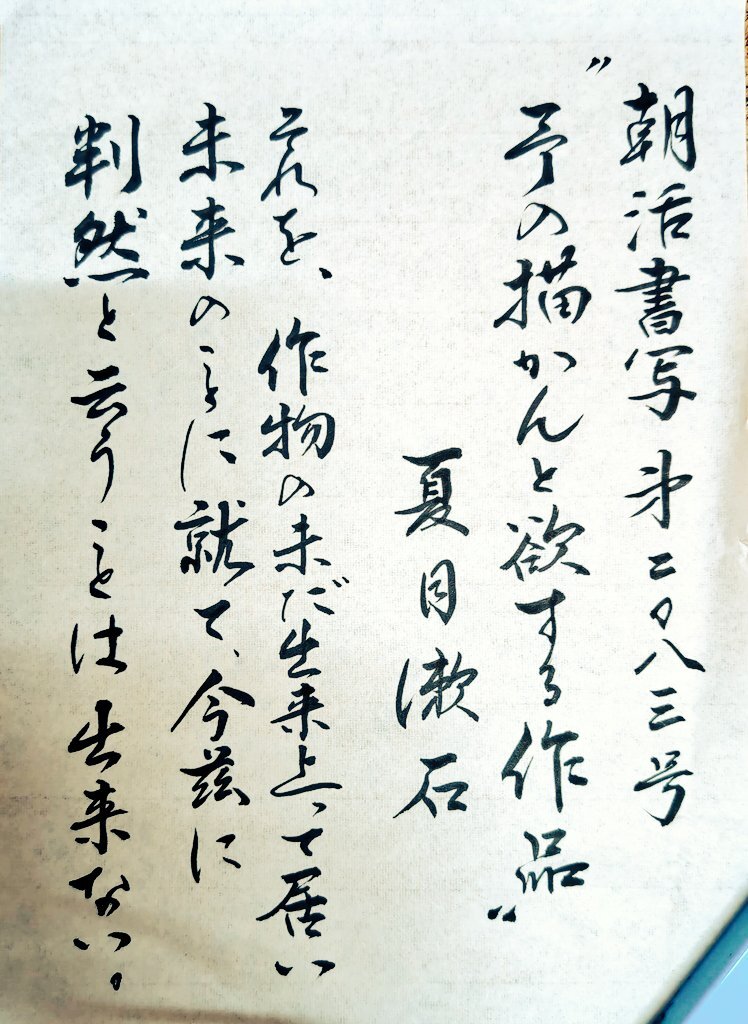 朝活書写 第二〇八三号
"予の描かんと欲する作品"
夏目漱石
それを、作物の未だ出来上って居い
未来のことに就て、今茲に
判然と云うことは出来ない。